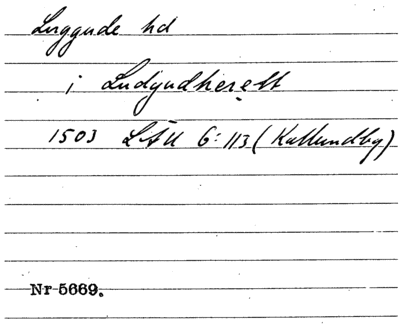 Luggude hd
i Ludgudherett
1503 LÅU 6:113 (Kallundby)
Nr 5669.